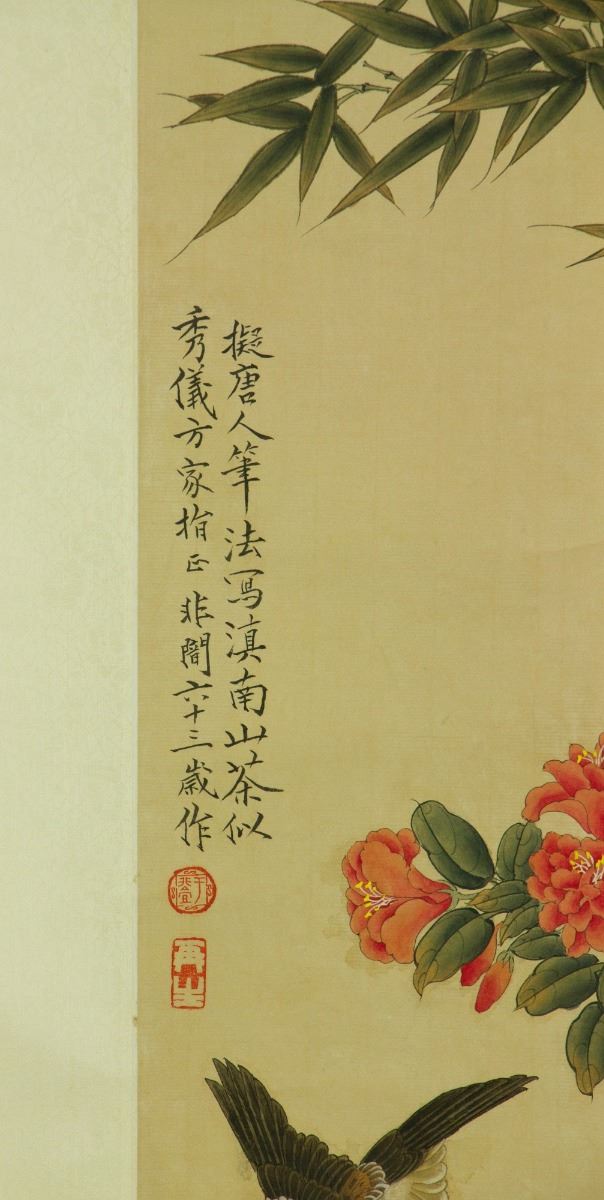 擬唐人筆法寫滇南山茶似
秀儀方家指正 非闇六十三歲作